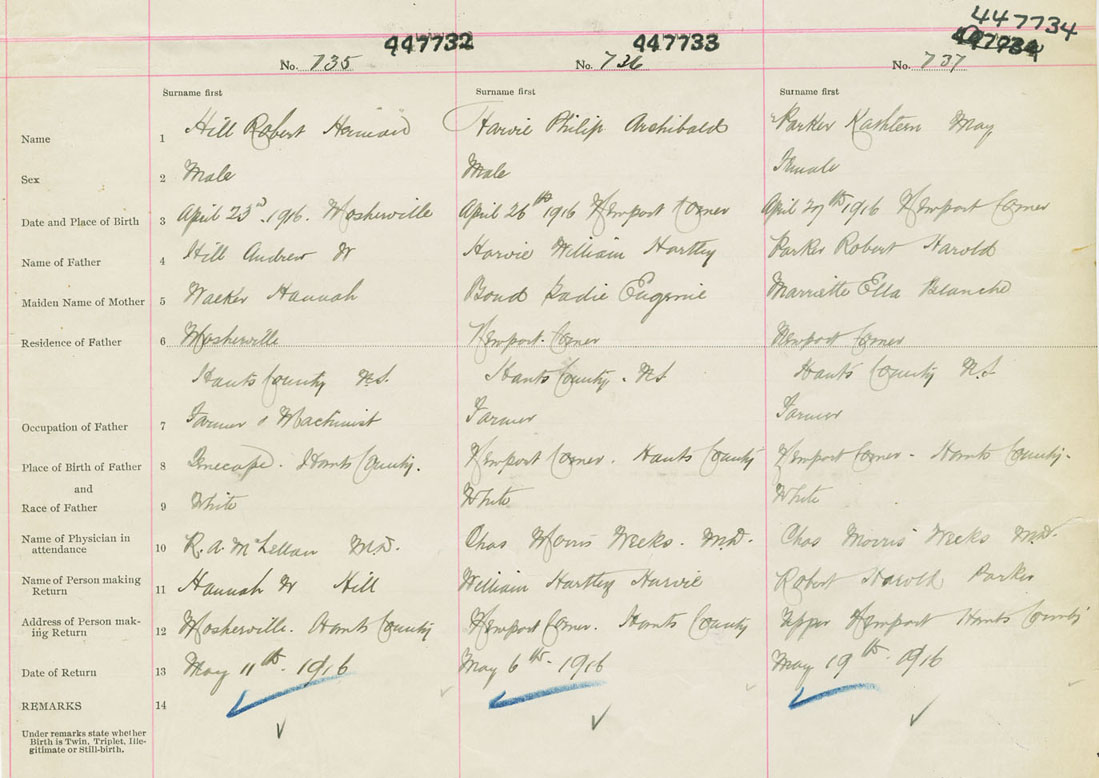 447734
447732 447733 447734
No. 735 No. 736 No. 737
Surname first Surname first Surname first
Name 1 Hill Robert Harvie Philip Archibald Parker Kathleen May
Sex 2 Male Male Female
Date and Place of Birth 3 April 23d 1916. Mosherville April 26th 1916 Newport Corner April 27th 1916 Newport Corner
Name of Father 4 Hill Andrew W Harvie William Hartley Parker Robert Harold
Maiden Name of Mother 5 Hannah Bond Sadie Eugenie Marriette Ella Blanche
Residence of Father 6 Mosherville Newport Corner Newport Corner
Hants County N.S. Hants County. N.S Hants County N.S
Occupation of Father 7 Farmer & Machinist Farmer Farmer
Place of Birth of Father 8 Hants County. Newport Corner. Hants County Newport Corner - Hants County.
and
Race of Father 9 White White White
Name of Physician in
attendance 10 R. A. McLellan M.D. Chas Morris Weeks. M.D. Chas Morris Weeks M.D.
Name of Person making
Return 11 Hannah W Hill William Hartley Harvie Robert Harold Parker
Address of Person mak-
ing Return 12 Mosherville. Hants County Newport Corner. Hants County Upper Newport Hants County
Date of Return 13 May 11th. 1916 May 6th. 1916 May 19th. 1916
REMARKS 14
Under remarks state whether
Birth is Twin, Triplet, Ille-
gitimate or Still-birth.